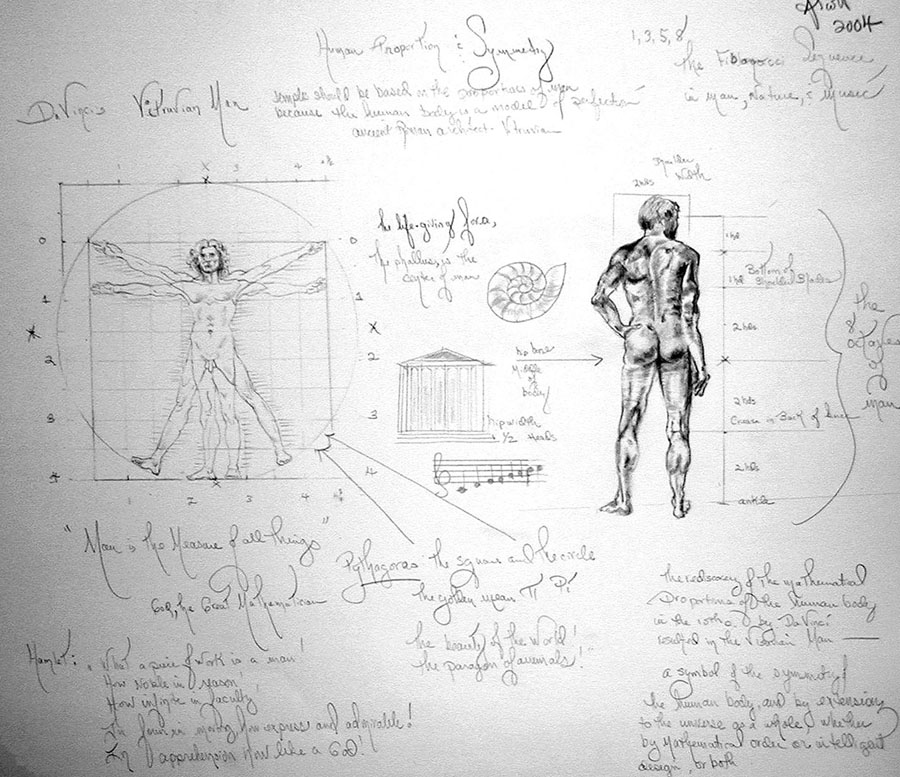 2004
Human Proportion & Symmetry
1, 3, 5, 8,
the Fibonocci Sequence
in man, Nature, & Music
DaVinci's Vitruvian Man
temple should be based on the proportions of man
because the human body is a model of perfection
ancient Roman architect - Vitruvian
1 3 4
0 0
1 1
2 2
3 3
4 4
1 2 3 4
the life-giving force,
the phallus, is the
center of man
hip bone
Middle
of
body
hip width
1 1/2 heads
shoulder
width
2 hds
1 hd
1 hd
Bottom of
Shoulder Blades
2 hds
2 hds
Crease in Back of knee
2 hds
ankle
the
8
octaves
of
man
"Man is the Measure of all things"
Pythagoras the square and the circle
God, the Great Mathematician
the golden mean π Pi
Hamlet: "What a piece of work is a man!
How noble in reason!
How infinite in faculty!
In form in moving how express and admirable!
In apprehension how like a God!
the beauty of the world!
the paragon of animals!"
the rediscovery of the mathematical
Proportions of the human body
in the 15th c. by DaVinci
resulted in the Vitruvian Man —
a symbol of the symmetry of
the human body, and by extension
to the universe as a whole, whether
by mathematical order or intelligent
design, or both